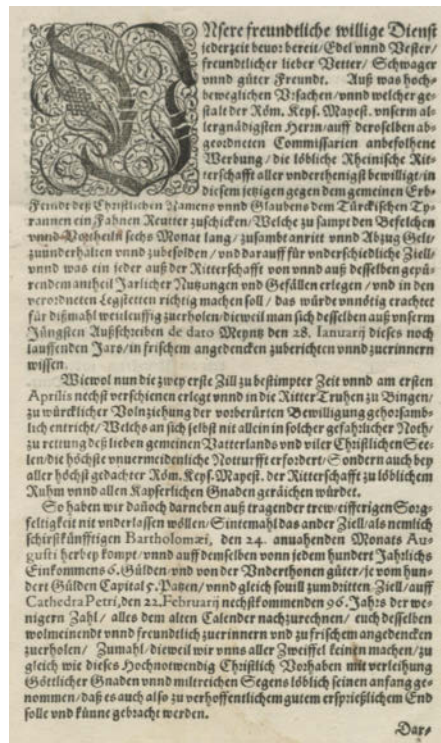 VNsere freundtliche willige Dienst
jederzeit beuor bereit/Edel vnnd Vester/
freundtlicher lieber Vetter/Schwager
vnnd güter Freundt. Auß was hoch-
beweglichen Vrsachen/vnnd welcher ge-
stalt der Röm. Keys. Mayest. vnserm al-
lergnädigsten Herrn/auff deroselben ab-
geordneten Commissarien anbefohlene
Werbung/die löbliche Rheinische Rit-
terschafft aller vnderthenigst bewilligt/in
diesem jetzigen gegen dem gemeinen Erb-
Feindt deß Christlichen Namens vnnd Glaubens dem Türckischen Ty-
rannen ein Fahnen Reutter zuschicken/Welche zu sampt den Befelchen
vnnd Vortheiln sechs Monat lang/zusambt anritt vnnd Abzug Gelt/
zuunderhalten vnnd zubesolden/vnd darauff für vnderschiedliche Ziell/
vnnd was ein jeder auß der Ritterschafft von vnnd auß desselben gepü-
rendem antheil Jarlicher Nutzungen vnd Gefällen erlegen/vnd in den
verordneten Legstetten richtig machen soll/das würde vnnötig erachtet
für dißmahl weuleuffig zuerholen/dieweil man sich desselben auß vnserm
Jüngsten Außschreiben de dato Meyntz den 28. Ianuarij dieses noch
lauffenden Jars/in frischem angedencken zuberichten vnnd zuerinnern
wissen.
Wiewol nun die zwey erste Zill zu bestimpter Zeit vnnd am ersten
Aprilis nechst verschienen erlegt vnnd in die Ritter Truhen zu Bingen/
zu würcklicher Volnziehung der vorberürten Bewilligung gehorsamb-
lich entricht/Welchs an sich selbst nit allein in solcher gefahrlicher Noth/
zu rettung deß lieben gemeinen Vatterlands vnd viler Christlichen See-
len/die höchste vnuermeidenliche Notturfft erfordert/Sondern auch bey
aller höchst gedachter Röm. Keys. Mayest. der Ritterschafft zu löblichem
Ruhm vnnd allen Kayserlichen Gnaden geräichen würdet.
So haben wir dañoch darneben auß tragender trew/eifferigen Sorg-
feltigkeit nit vnderlassen wöllen/Sintemahl das ander Ziell/als nemlich
schirstkünfftigen Bartholomæi, den 24. anuahenden Monats Au-
gusti herbey kompt/vnnd auff demselben vonn jedem hundert Jahrlichs
Einkommens 6. Gülden/vnd von der Vnderthonen güter/je vom hun-
dert Gülden Capital 5. Patzen/vnnd gleich souill zum dritten Ziell/auff
Cathedra Petri, den 22. Februarij nechstkommenden 96. Jahrs der we-
nigern Zahl/ alles dem alten Calender nachzurechnen/ euch desselben
wolmeinendt vnnd freundtlich zuerinnern vnd zu frischem angedencken
zuerholen/ Zumahl/dieweil wir vnns aller Zweiffel keinen machen/zu
gleich wie dieses Hochnotwendig Christlich Vorhaben mit verleihung
Göttlicher Gnaden vnnd miltreichen Segens löblich seinen anfang ge-
nommen/daß es auch also zu verhoffentlichem gutem ersprießlichem End
solle vnd künne gebracht werden.
Dar-